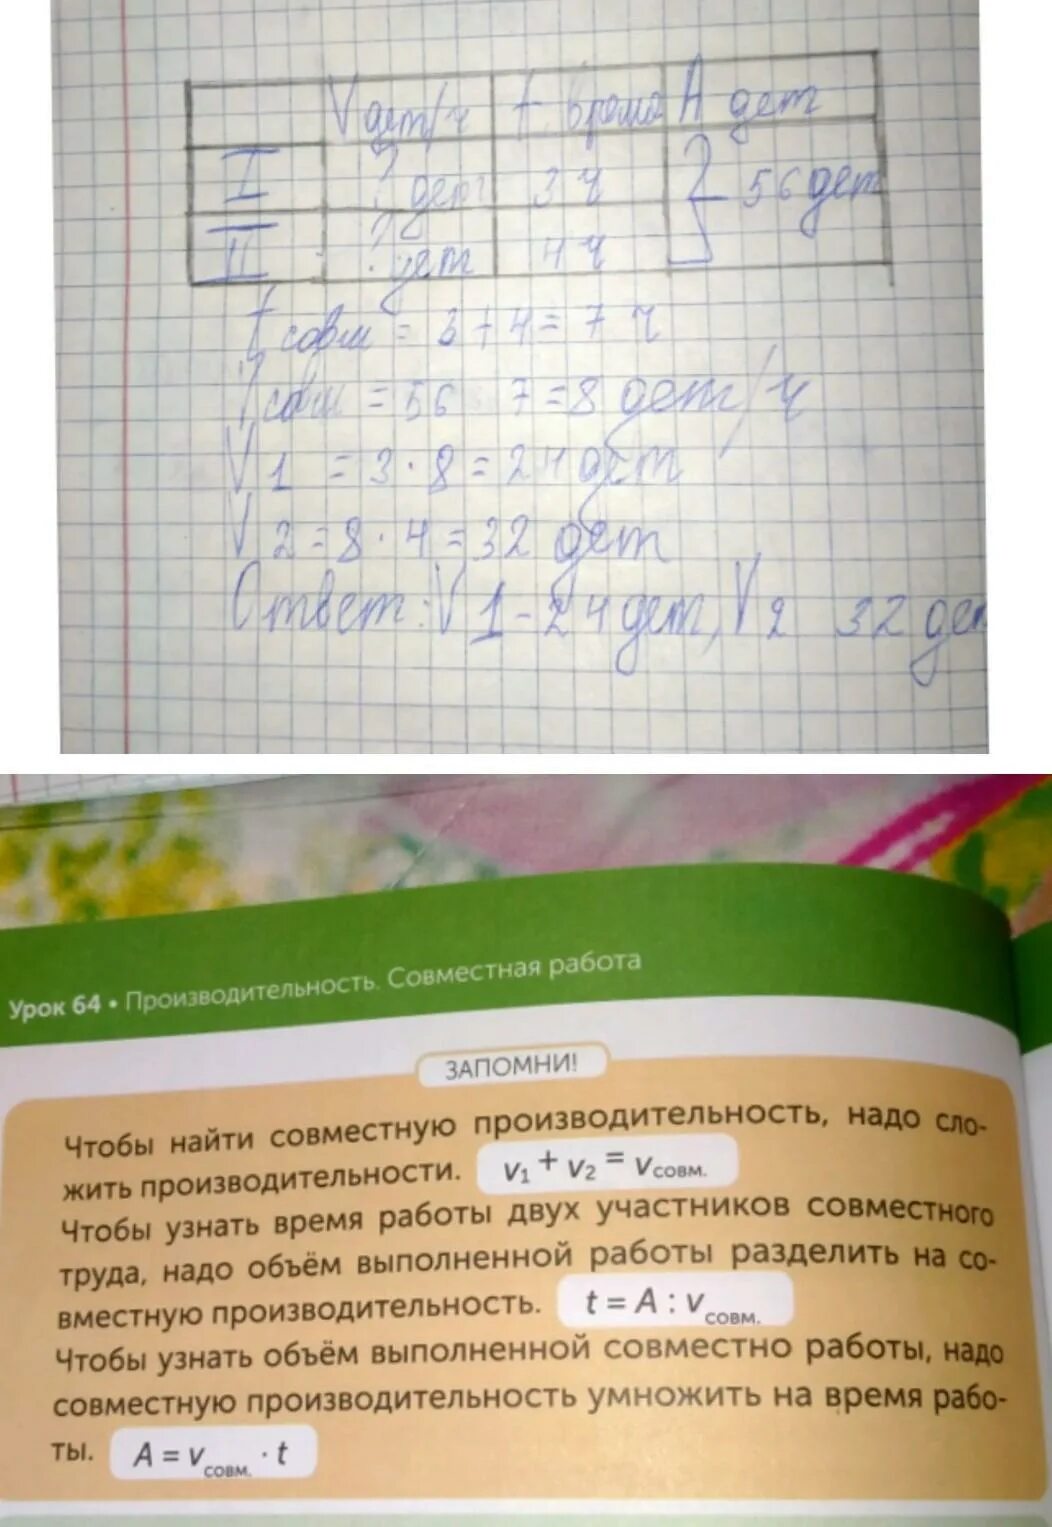 V дет/ч t время А дет
I ? дет 3 ч } 56 дет
II ? дет 4 ч
t совм = 3 + 4 = 7 ч
совм = 56 7 = 8 дет/ч
V 1 = 3 · 8 = 24 дет
V 2 = 8 · 4 = 32 дет
Ответ: V 1 - 24 дет, V 2 32 дет
Урок 64 • Производительность. Совместная работа
ЗАПОМНИ!
Чтобы найти совместную производительность, надо сло-
жить производительности. v₁ + v₂ = v совм.
Чтобы узнать время работы двух участников совместного
труда, надо объём выполненной работы разделить на со-
вместную производительность. t = A : v совм.
Чтобы узнать объём выполненной совместно работы, надо
совместную производительность умножить на время рабо-
ты. A = v совм. · t